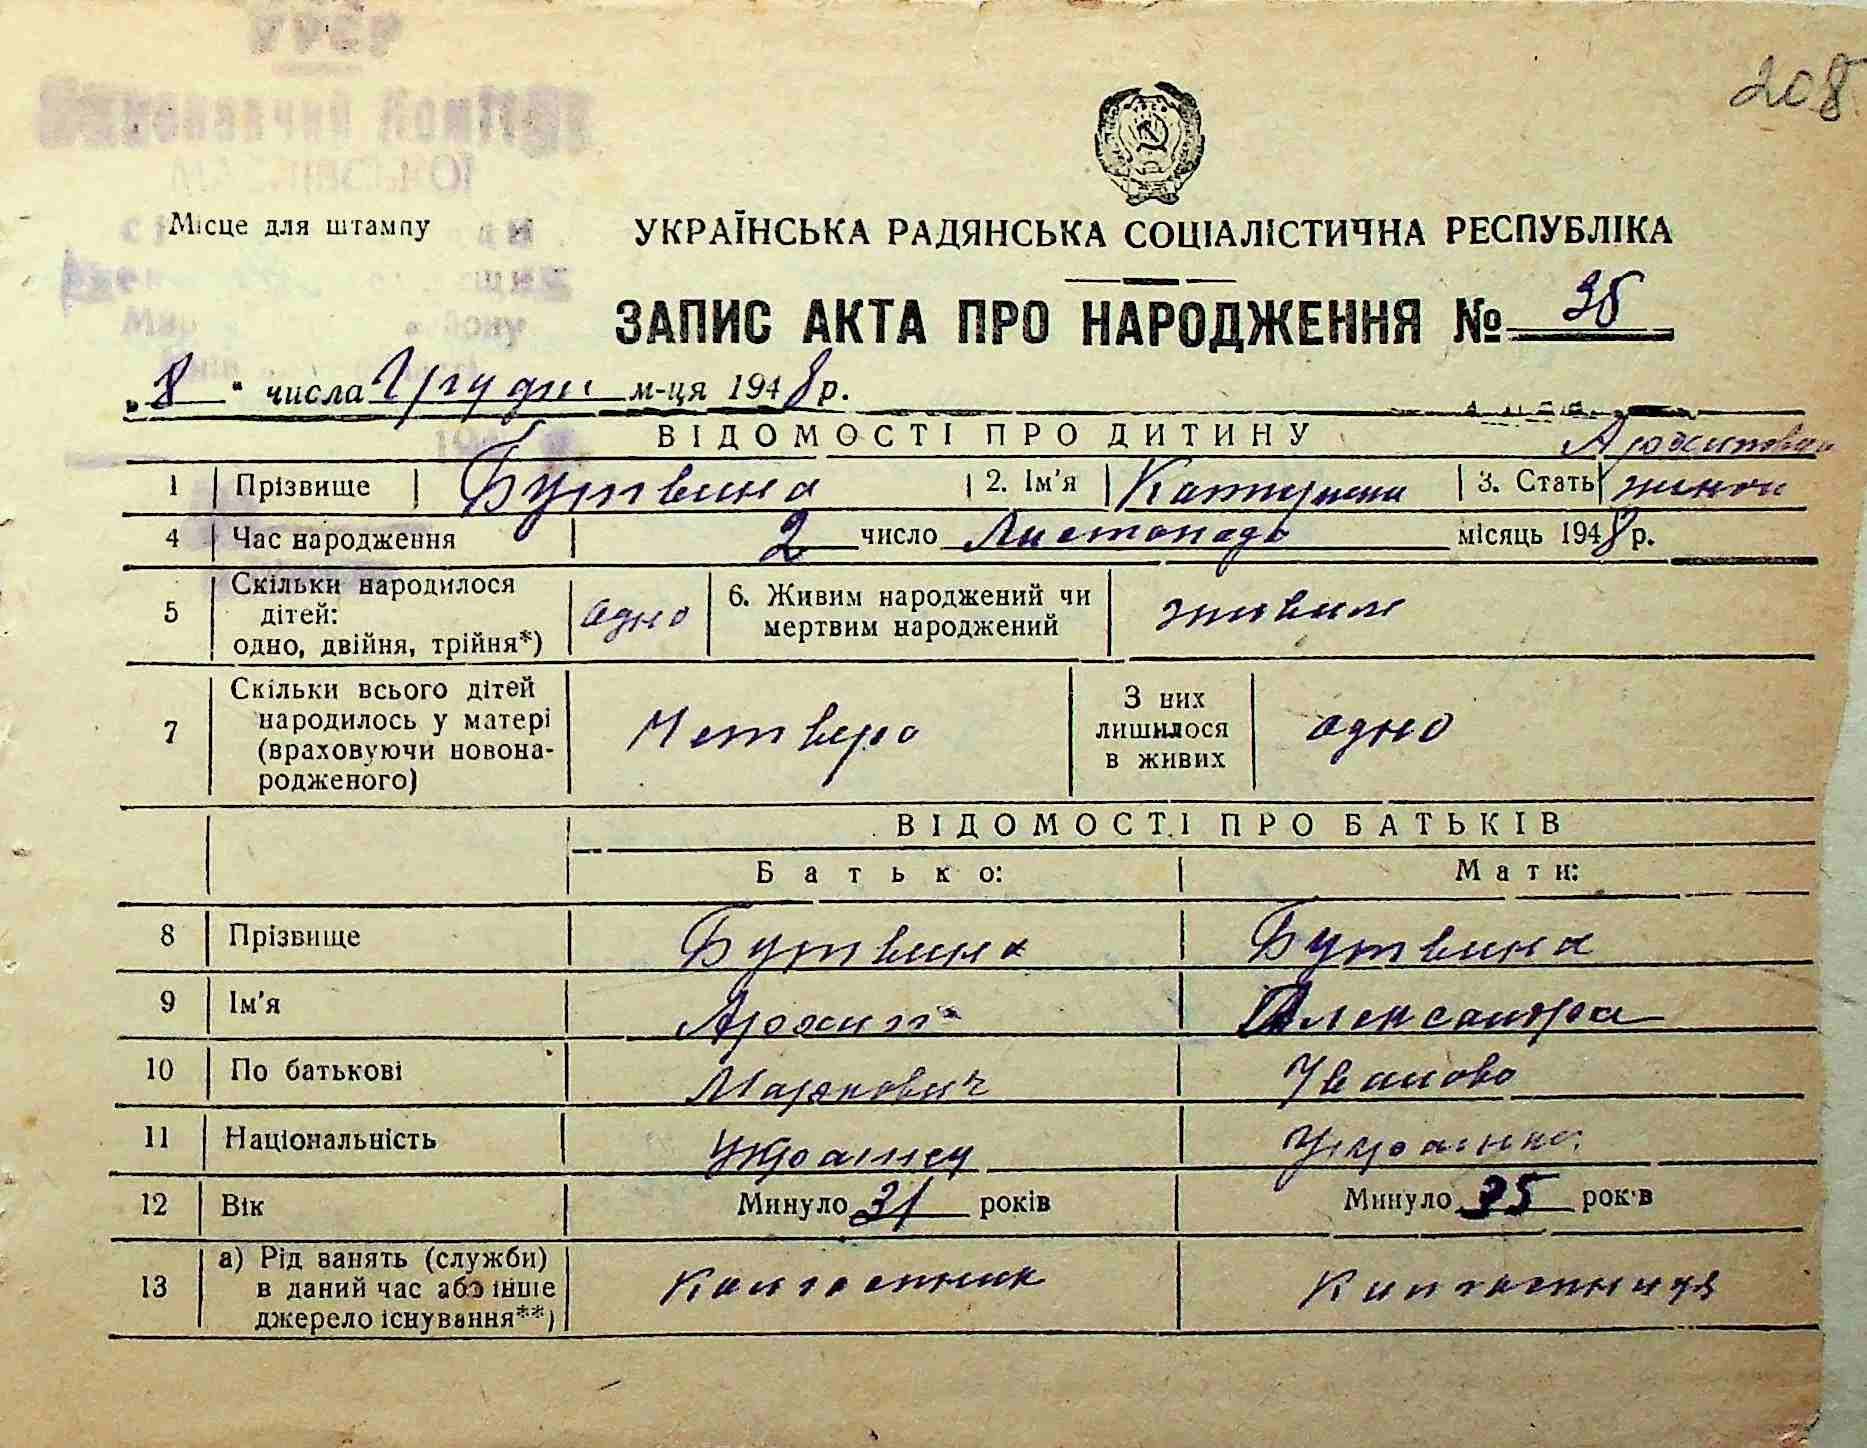 208
УРСР
Виконавчий Комітет
МАСЛІВСЬКОЇ
Місце для штампу
УКРАЇНСЬКА РАДЯНСЬКА СОЦІАЛІСТИЧНА РЕСПУБЛІКА
ЗАПИС АКТА ПРО НАРОДЖЕННЯ № 35
„8" числа Грудня м-ця 1948 р.
ВІДОМОСТІ ПРО ДИТИНУ
Архиповна
1 Прізвище Бутвина 2. Ім'я Катерина 3. Стать жіноч
4 Час народження 2 число Листопада місяць 1948 р.
5 Скільки народилося дітей: одно, двійня, трійня*) одно 6. Живим народжений чи мертвим народжений живим
7 Скільки всього дітей народилось у матері (враховуючи новонародженого) Четверо З них лишилося в живих одно
ВІДОМОСТІ ПРО БАТЬКІВ
Батько: Мати:
8 Прізвище Бутвина Бутвина
9 Ім'я Архип Александра
10 По батькові Маркович Іванова
11 Національність Українец Українка
12 Вік Минуло 31 років Минуло 35 років
13 а) Рід занять (служби) в даний час або інше джерело існування**) Колгоспник Колгоспниця